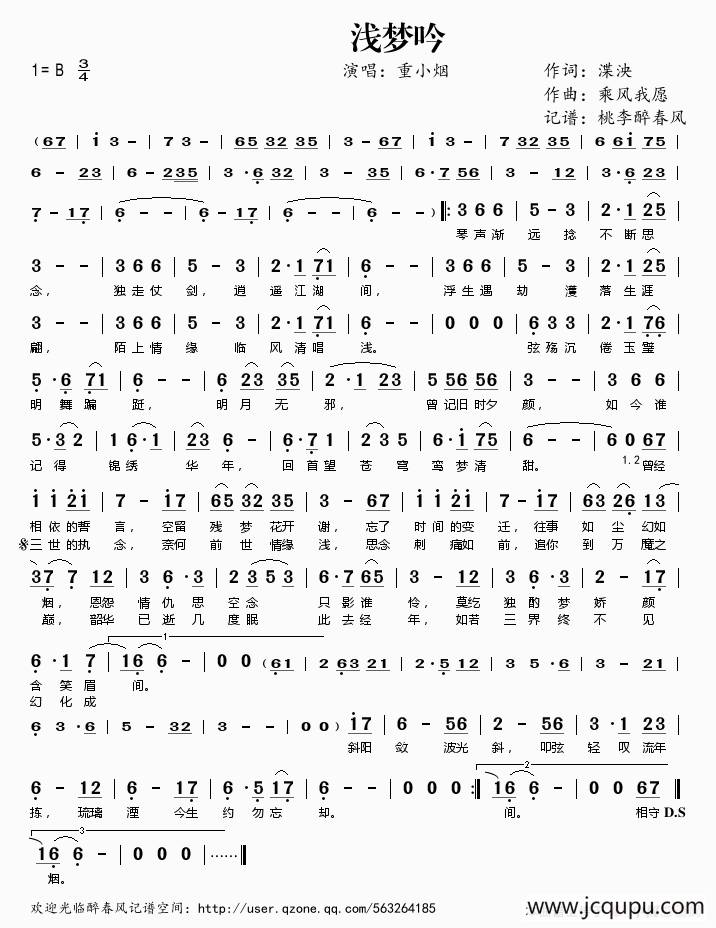 浅梦吟
1=B 3/4 演唱：重小烟 作词：渫泱
作曲：乘风我愿
记谱：桃李醉春风
(67 | i 3 - | 7 - 3 | 65 32 35 | 3 - 67 | i 3 - | 7 - 23 | 65 32 35 | 6 6i 75 |
6 - 23 | 6 - 235 | 3 · 6 32 | 3 - 35 | 6 · 7 56 | 3 - 12 | 3 · 6 23 |
7 - 17 | 6 - - | 6 - 17 | 6 - - | 6 - - ) ‖: 3 6 6 | 5 - 3 | 2 · 1 25 |
琴声渐 远捻 不断思
3 - - | 3 6 6 | 5 - 3 | 2 · 1 71 | 6 - - | 3 6 6 | 5 - 3 | 2 · 1 25 |
念， 独走仗 剑，逍 遥江湖 间， 浮生遇 劫 濩 落生涯
3 - - | 3 6 6 | 5 - 3 | 2 · 1 71 | 6 - - | 0 0 0 | 6 3 3 | 2 · 1 76 |
翩， 陌上情 缘 临 风清唱 浅。 弦殇沉 倦玉璧
5 · 6 71 | 6 - - | 6 23 35 | 2 · 1 23 | 6 56 12 | 3 - - | 3 6 6 |
明 舞蹁 跹， 明月无 邪， 曾记旧时夕 颜， 如今谁
5 · 3 2 | 16 · 1 | 23 6 - | 6 · 7 | 2 3 5 | 6 · 1 75 | 6 - - | 6 0 67 |
记得 锦绣 华年， 回首望 苍穹 鸾梦清 甜。 1.2 曾经
i i 2i | 7 - i7 | 65 32 35 | 3 - 67 | i i 2i | 7 - i7 | 63 26 13 |
相依的誓 言，空留 残梦花开 谢，忘了 时间的变 迁，往事 如尘幻如
𝄋三世的执 念，奈何 前世情缘 浅，思念 刺痛如 前，追你 到万魔之
37 7 12 | 3 6 · 3 | 2 35 3 | 6 · 7 65 | 3 - 12 | 3 6 · 3 | 2 - 17 |
烟，恩怨 情仇思 空念 只影谁 怜，莫纥 独酌梦 娇颜
巅，韶华 已逝几 度眠 此去经 年，如若 三界终 不见
6 · 1 7 | 16 6 - | 0 0 (61 | 2 63 21 | 2 · 5 12 | 3 5 · 6 | 3 - 21 |
含笑眉 间。
幻化成
6 3 · 6 | 5 - 32 | 3 - - | 0 0 ) i7 | 6 - 56 | 2 - 56 | 3 · 1 23 |
斜阳 敛 波光 斜，叩弦 轻叹流年
6 - 12 | 6 - 17 | 6 · 5 17 | 6 - - | 0 0 0 :‖ 16 6 - | 0 0 67 ‖
拣，琉璃 湮 今生 约勿忘 却。 间。 相守 D.S
16 6 - | 0 0 0 | ······ ‖
烟。
欢迎光临醉春风记谱空间：http://user.qzone.qq.com/563264185
www.jcqupu.com